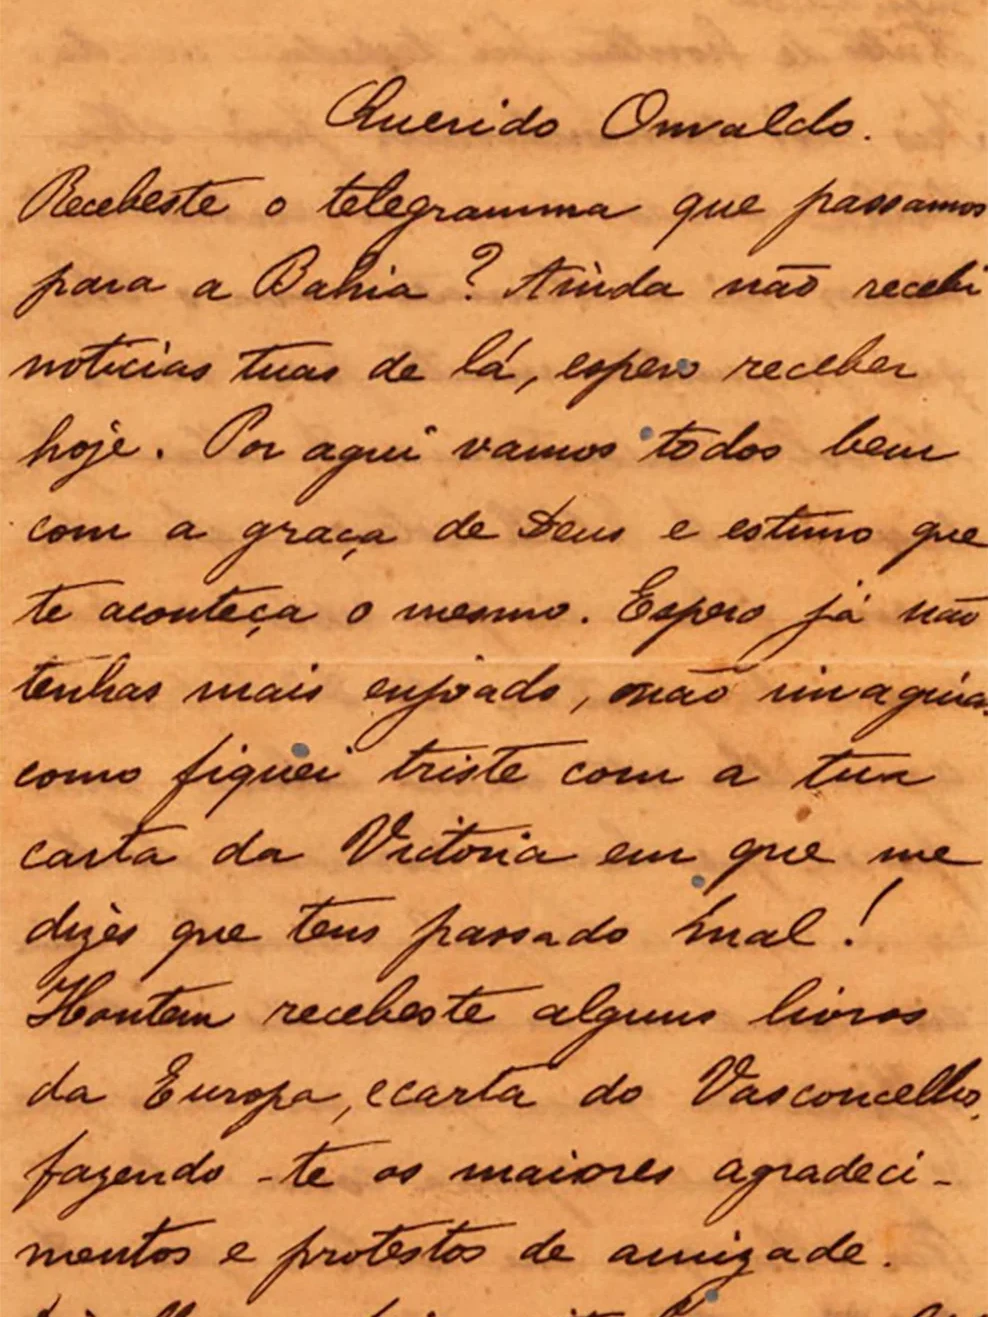 Querido Oswaldo.
Recebeste o telegramma que passamos
para a Bahia? Ainda não recebi
noticias tuas de lá, espero receber
hoje. Por aqui vamos todos bem
com a graça de Deus e estimo que
te aconteça o mesmo. Espero já não
tenhas mais enjoado, não imaginas
como fiquei triste com a tua
carta da Victoria em que me
dizes que tens passado mal!
Hontem recebeste alguns livros
da Europa, e carta do Vasconcellos,
fazendo-te os maiores agradeci-
mentos e protestos de amizade.